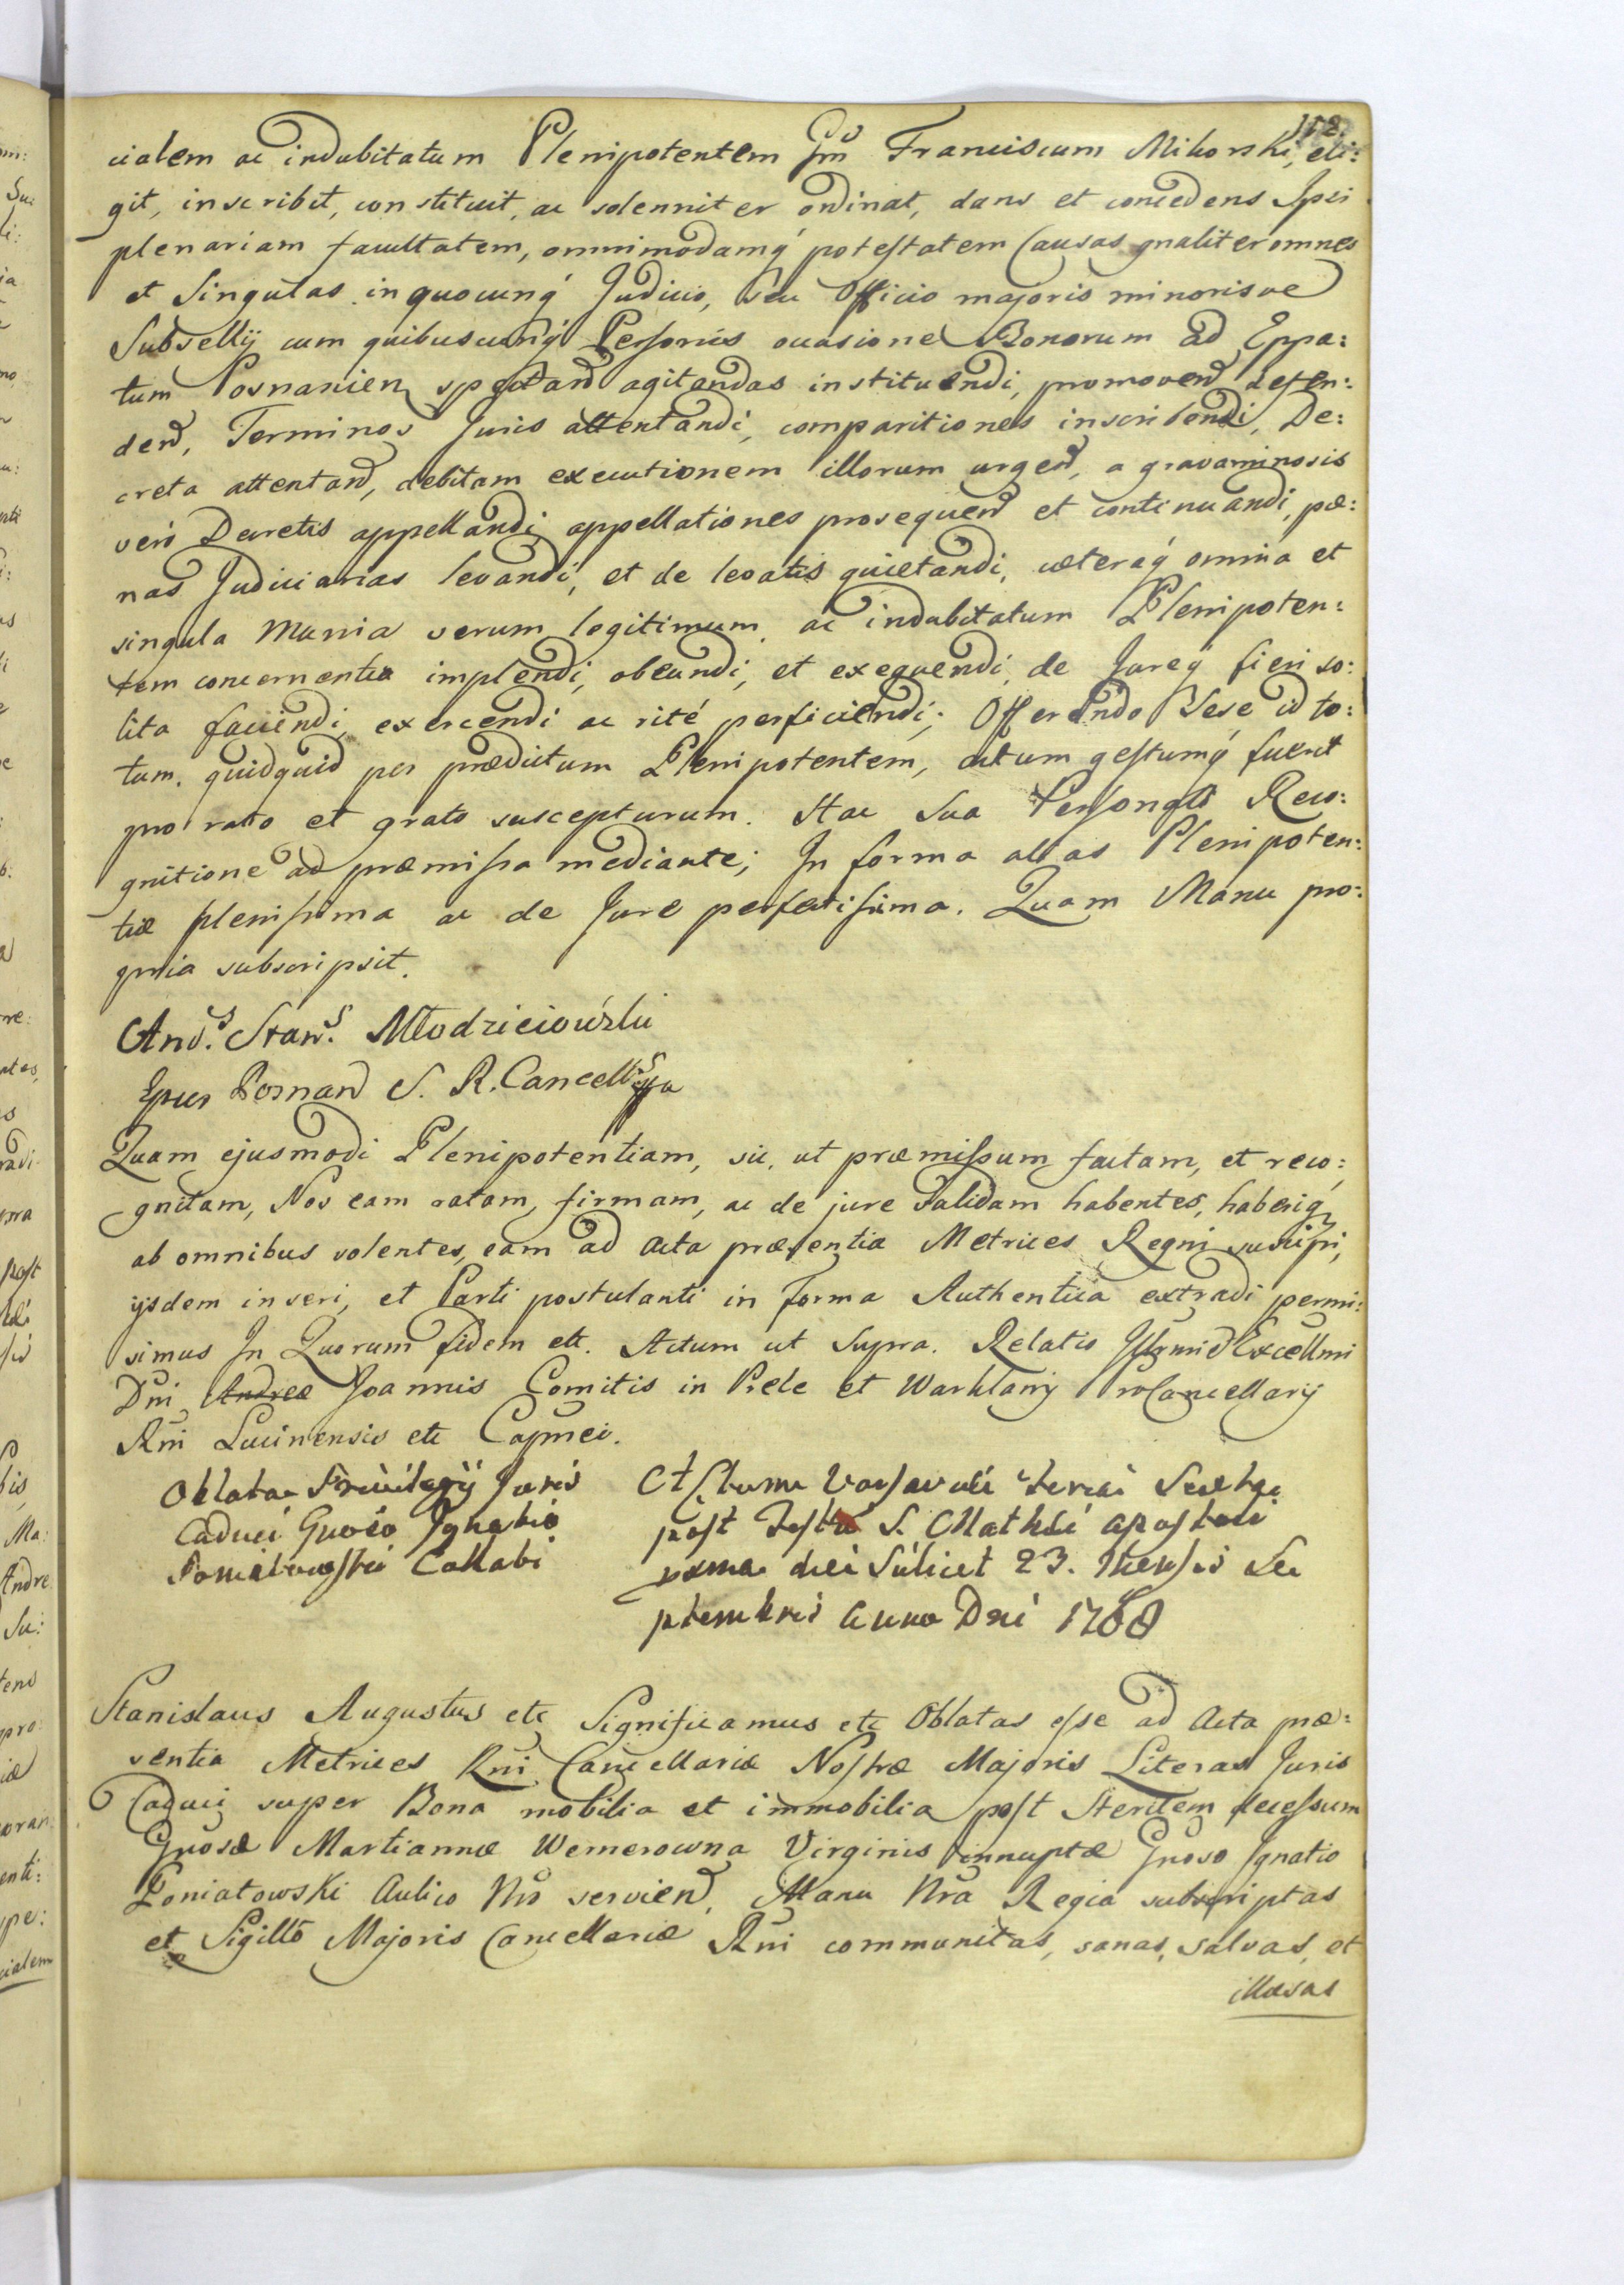 158.
cialem ac indubitatum Plenipotentem Gnm Franciscum Mikorski, eli:
git, inscribit, constituit, ac solenniter ordinat, dans et concedens Ipsi
plenariam facultatem, omnimodamq́ potestatem Causas gnaliter omnes
et Singulas in quocunq́ Judicio, seu Officio majoris minorisve
Subsellij cum quibuscunq́ Personis occasione Bonorum ad Eppa:
tum Posnanien spectand agitandas instituendi, promovend defen:
dend, Terminos Juris attentandi, comparitiones inscribendi, De:
creta attentand, debitam executionem illorum urgend, a gravaminosis
veró Decretis appellandi appellationes prosequend et continuandi, pæ:
nas Judiciarias levandi, et de levatis quietandi, cæteraq́ omnia et
singula Munia verum legitimum ac indubitatum Plenipoten:
tem concernentia implendi, obeundi, et exequendi, de Jureq́ fieri so:
lita faciendi, exercendi ac rité perficiendi; Offerendo Sese id to:
tum, quidquid per prædictum Plenipotentem, actum gestumq́ fuerit
pro rato et grato suscepturum. Hac Sua Personali Reco:
gnitione ad præmissa mediante; In forma alias Plenipoten:
tiæ plenissima ac de Jure perfectissima. Quam Manu pro:
pria subscripsit.
And.s Stan.s Młodzieiowski
Epus Posnan S. R. Cancell.s
Quam ejusmodi Plenipotentiam, sic, ut præmissum factam, et reco:
gnitam, Nos eam ratam, firmam, ac de jure validam habentes, haberiq
ab omnibus volentes, eam ad Acta præsentia Metrices Regni suscipi,
ijsdem inseri, et Parti postulanti in forma Authentica extradi permi:
simus In Quorum fidem ett. Actum ut Supra. Relatio Illrmi Excellmi
Dni Andreæ Joannis Comitis in Prele et Warklany ProCancellarij
Rni Lucinensis etc Capnei.
Oblata Privilegij Juris
Caduci Gnoso Ignatio
Poniatowski Collati
Actum Varsaviæ feria Sexta
post Festum S. Mathæi Apostoli
pxma die Scilicet 23. Mensis Se
ptembris Anno Dni 1768
Stanislaus Augustus etc Significamus etc Oblatas esse ad Acta præ:
sentia Metrices Rni Cancellariæ Nostræ Majoris Literas Juris
Caduci super Bona mobilia et immobilia post Sterilem decessum
Gnosæ Martiannæ Wernerowna Virginis innuptæ Gnoso Ignatio
Poniatowski Aulico Nro serviend, Manu Nra Regia subscriptas
et Sigillo Majoris Cancellariæ Rni communitas, sanas, salvas, et
illæsas